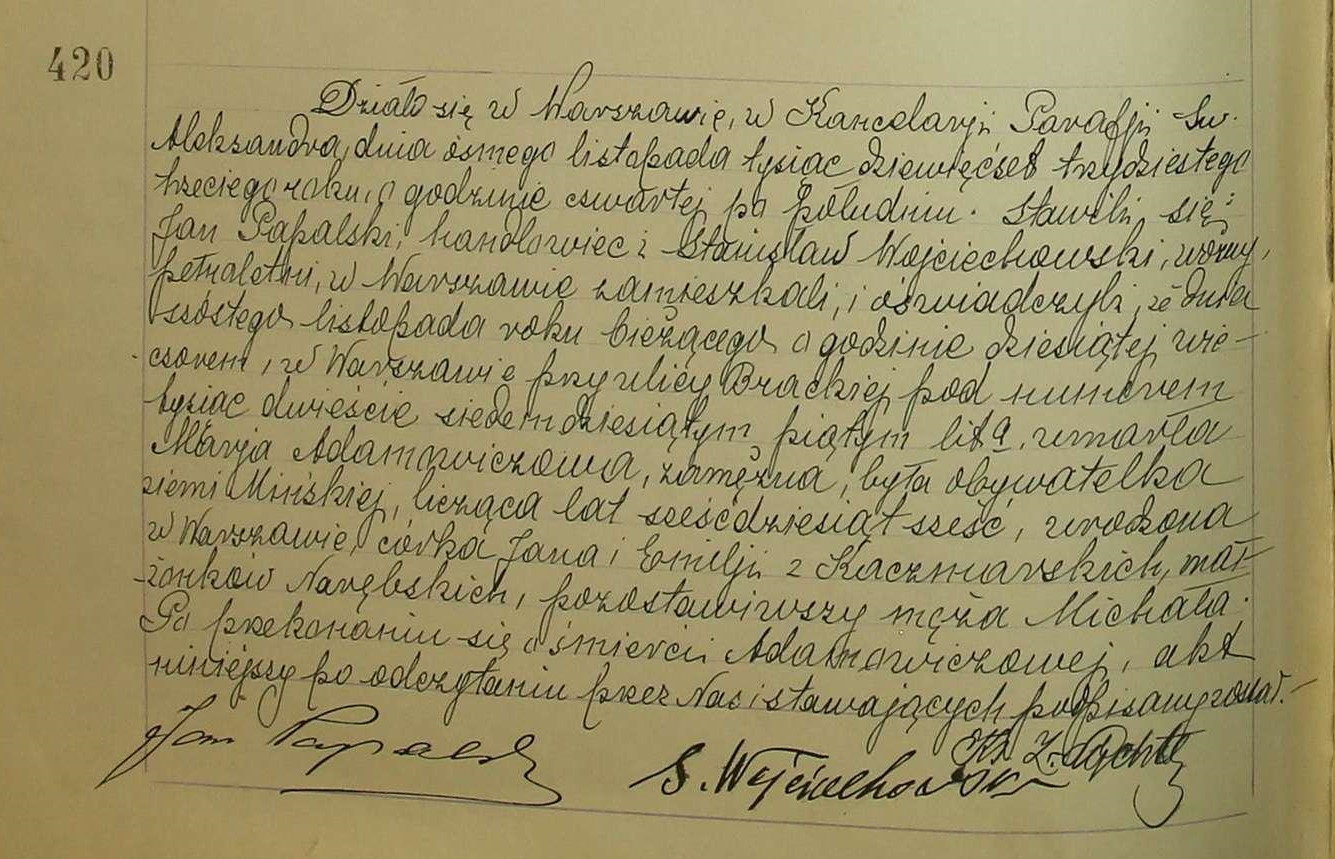 420
Działo się w Warszawie, w Kancelarji Parafji Św.
Aleksandra, dnia ósmego listopada tysiąc dziewięćset trzydziestego
trzeciego roku, o godzinie czwartej po południu. Stawili się:
Jan Papalski, handlowiec i Stanisław Wojciechowski, woźny,
pełnoletni, w Warszawie zamieszkali, i oświadczyli, że dnia
szóstego listopada roku bieżącego o godzinie dziesiątej wie-
czorem, w Warszawie przy ulicy Brackiej pod numerem
tysiąc dwieście siedemdziesiątym piątym lit a, umarła
Marja Adamowiczowa, zamężna, była obywatelka
ziemi Mińskiej, licząca lat sześćdziesiąt sześć, urodzona
w Warszawie, córka Jana i Emilji z Kaczmarskich, mał-
żonków Narębskich, pozostawiwszy męża Michała.
Po przekonaniu się o śmierci Adamowiczowej, akt
niniejszy po odczytaniu przez Nas i stawających podpisany został.-
Jan Papalski
S. Wojciechowski
Ks. Z.